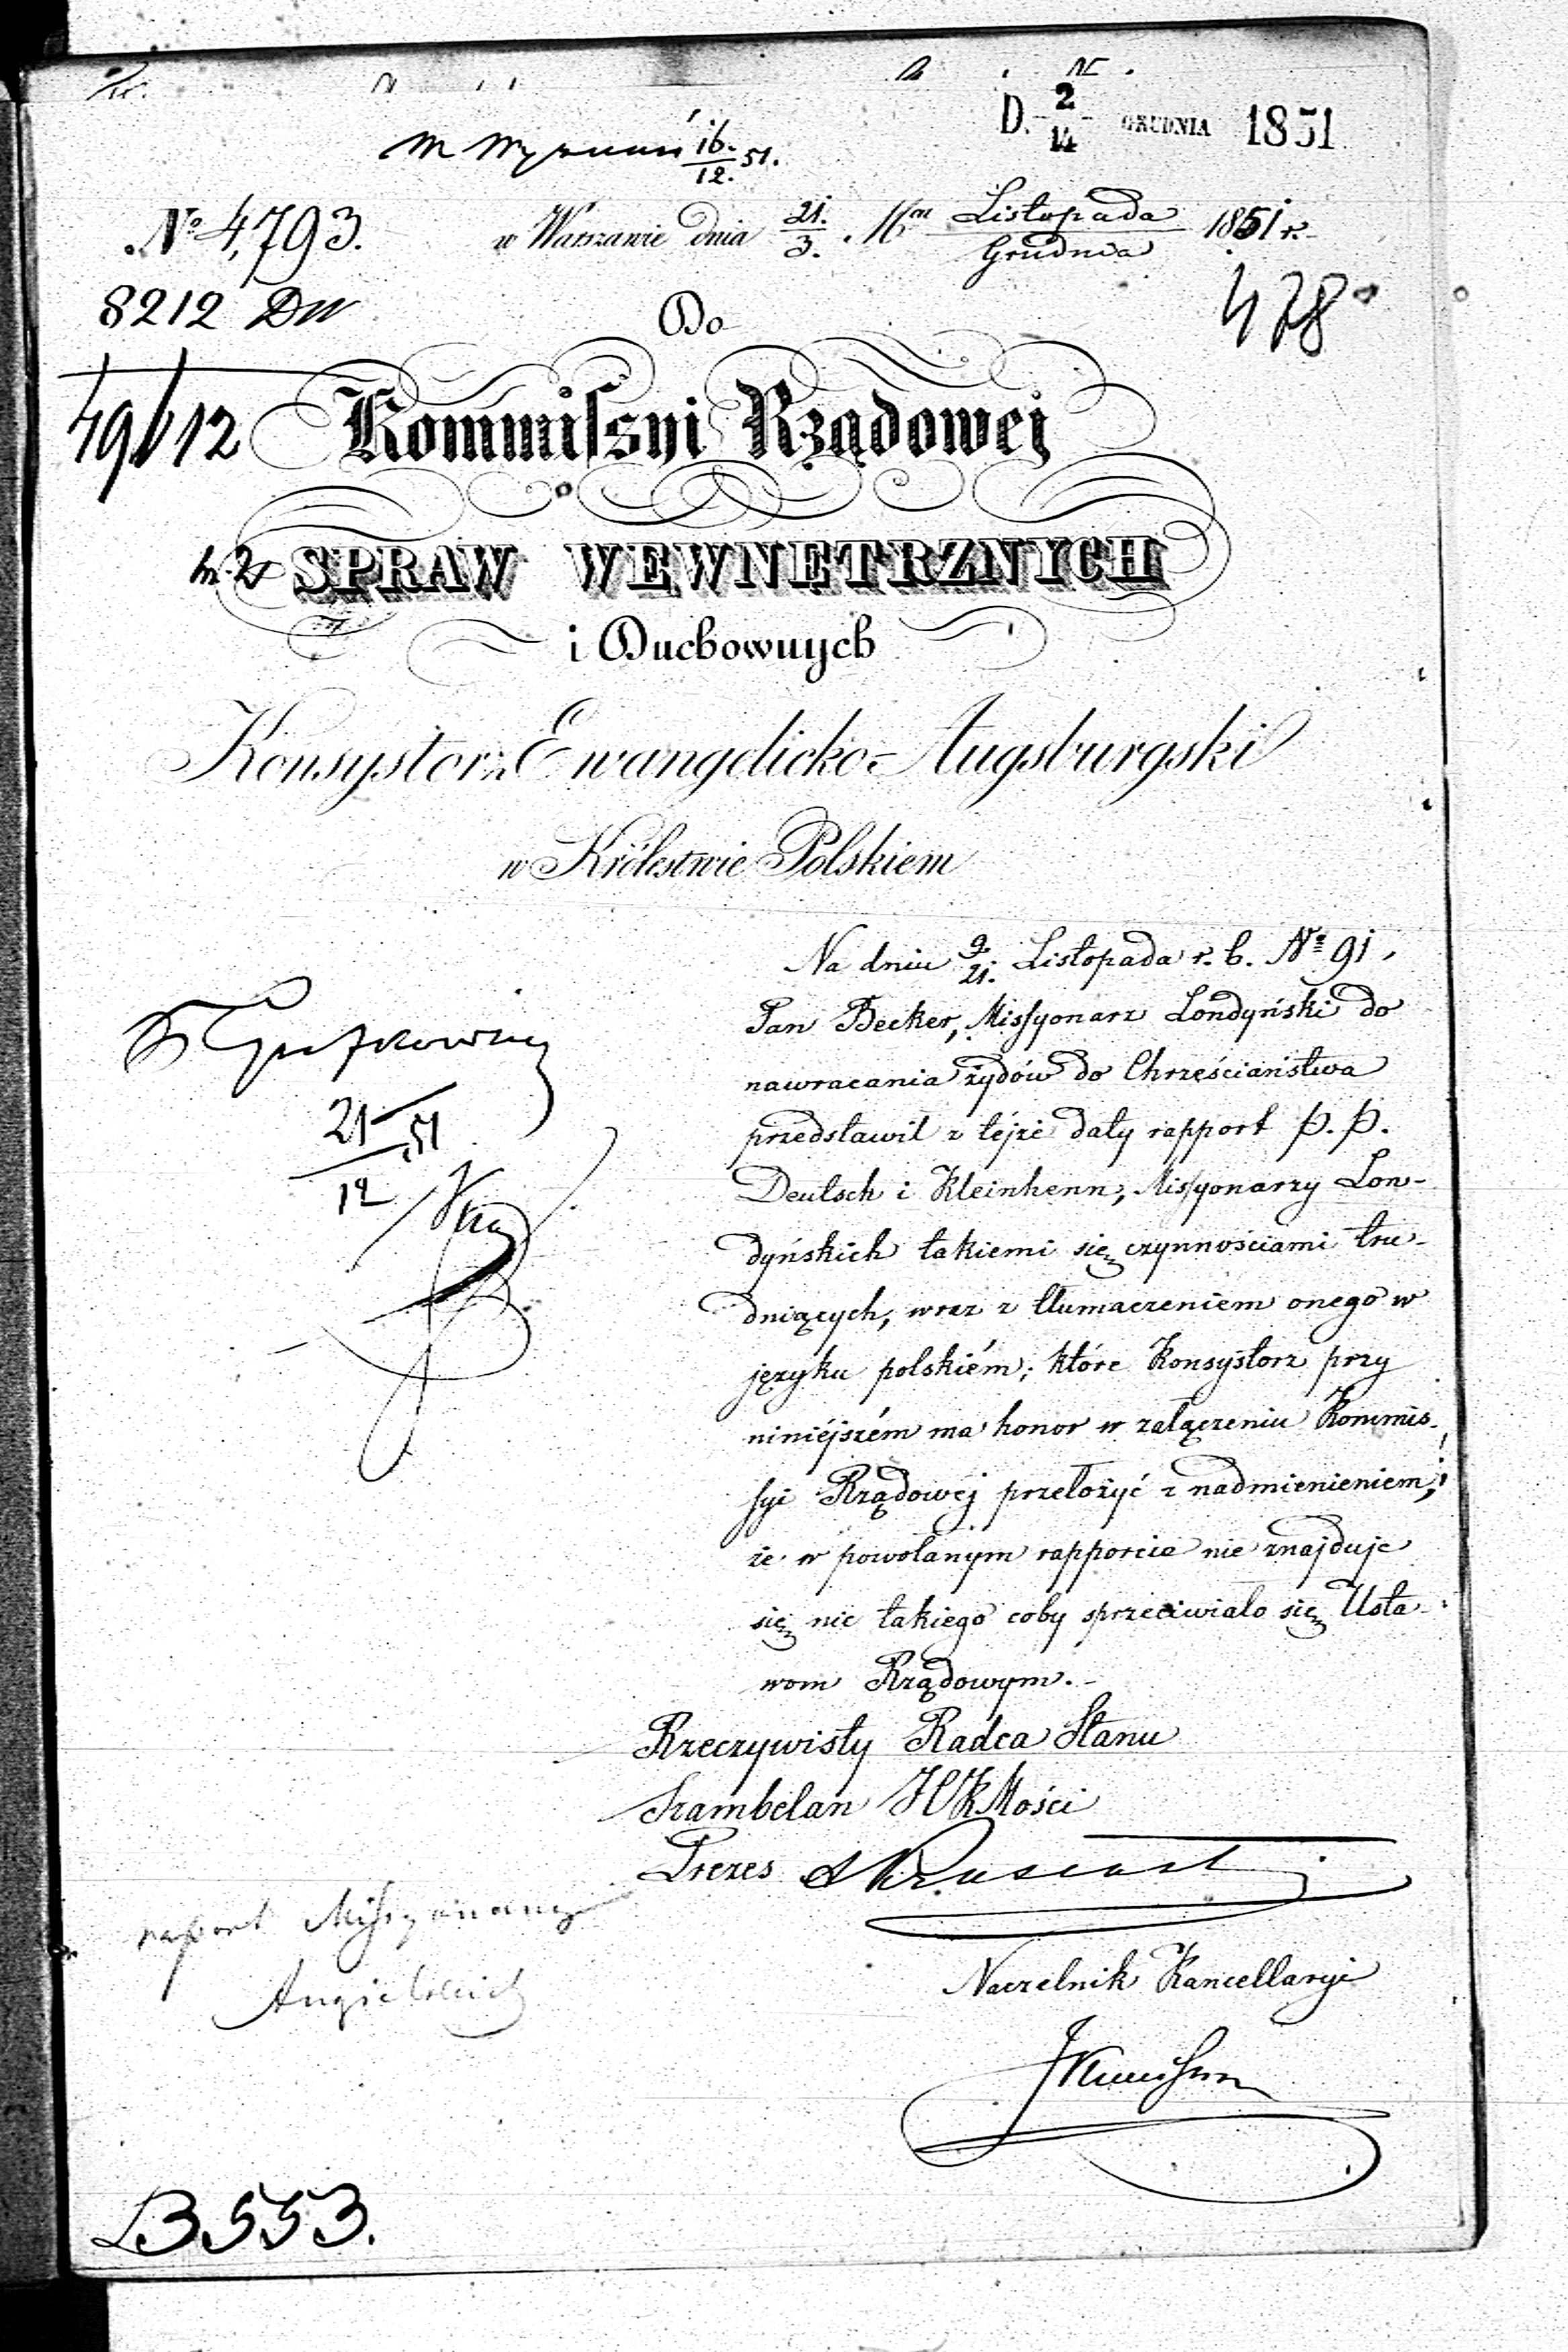 D. 2/14 GRUDNIA 1851
16/12 51.
№ 4,793.
w Warszawie dnia 21/3. Mca Listopada/Grudnia 1851 r.
8212 DW
478
Do
49/12
Kommiſsyi Rządowej
SPRAW WEWNĘTRZNYCH
i Duchownych
Konsystorz Ewangelicko-Augsburgski
w Królestwie Polskiem
Na dniu 9/21. Listopada r. b. № 91,
Pan Becker, Misſyonarz Londyński do
nawracania żydów do Chrześciaństwa
przedstawił z téjże daty rapport P. P.
Deutsch i Kleinhenn, Misſyonarzy Lon-
dyńskich takiemi się czynnościami tru-
dniących, wraz z tłumaczeniem onego w
języku polskiém; które Konsystorz przy
niniéjszém ma honor w załączeniu Kommis-
ſyi Rządowej przełożyć z nadmienieniem,
że w powołanym rapporcie nie znajduje
się nic takiego coby sprzeciwiało się Usta-
wom Rządowym.-
21/12 51
Rzeczywisty Radca Stanu
Szambelan JCKMości
Prezes
raport Miſsyonarzy
Angielskich
Naczelnik Kancellaryi
B 553.